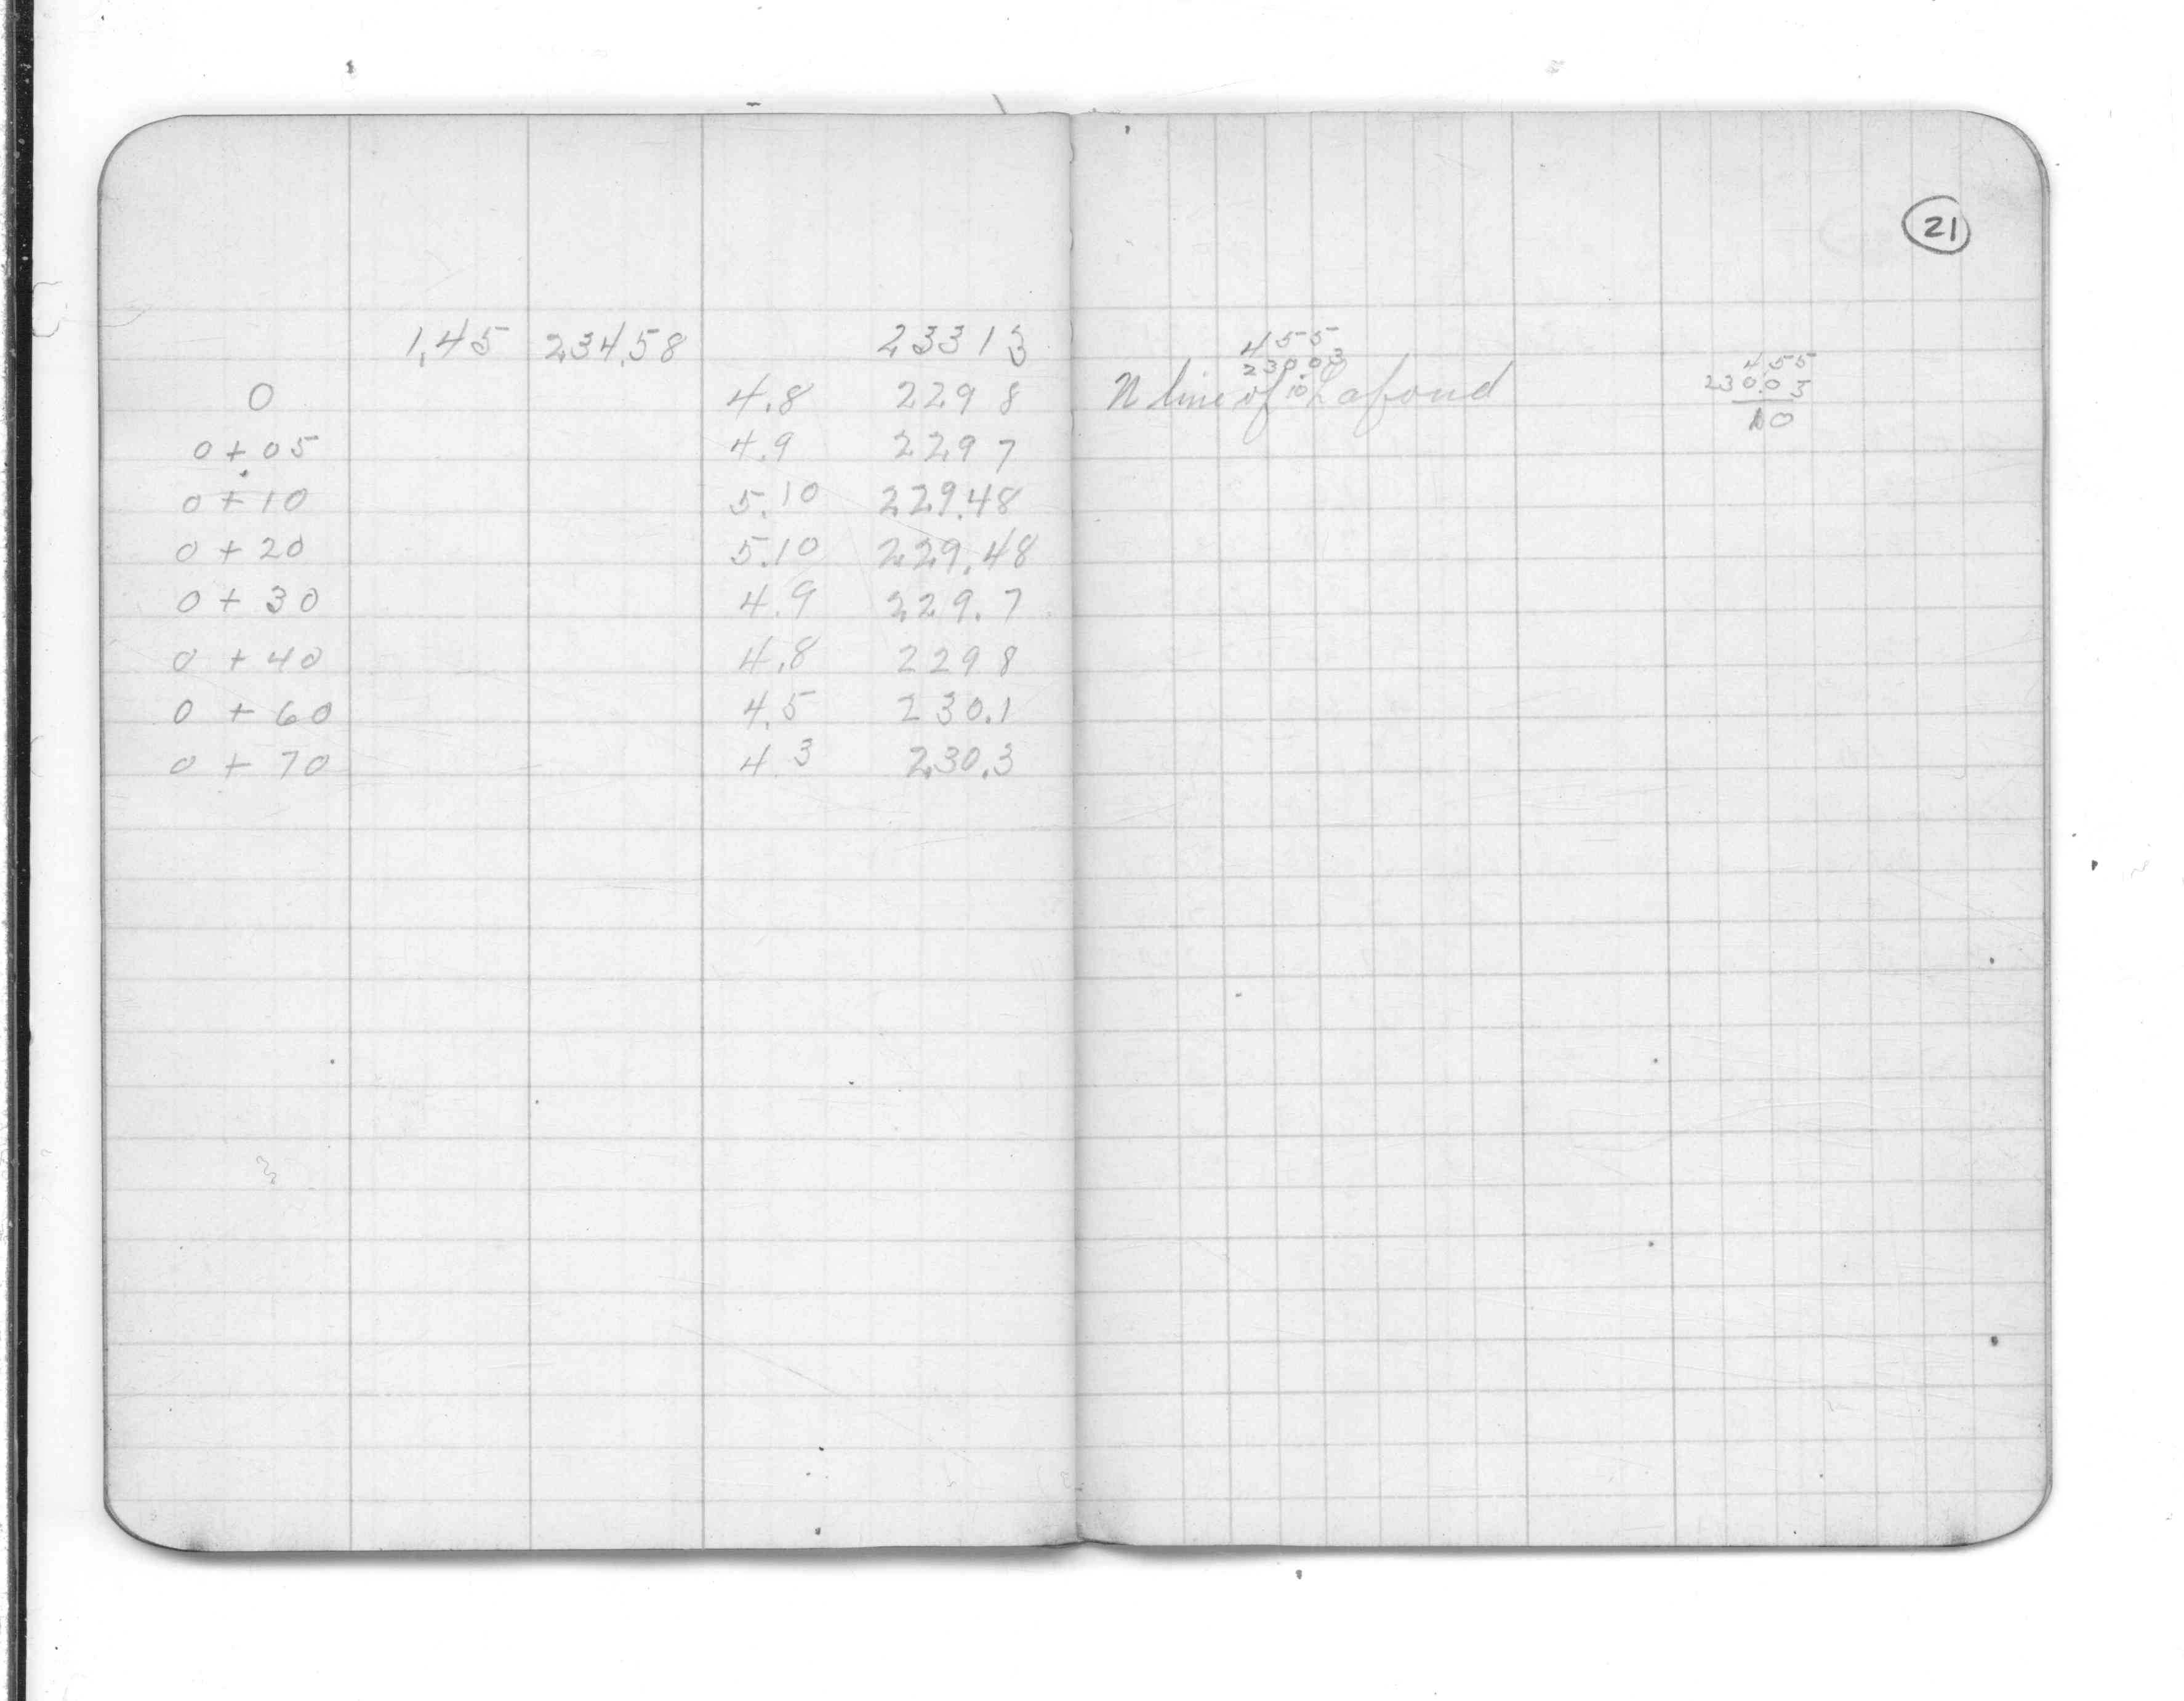 21
1.45 234.58 233 13
0 4.8 229 8
0 + 05 4.9 229 7
0 + 10 5.10 229.48
0 + 20 5.10 229.48
0 + 30 4.9 229.7
0 + 40 4.8 229 8
0 + 60 4.5 230.1
0 + 70 4 3 230.3
4 55
230.03
10
N line of Lafond
4 55
230.03
10